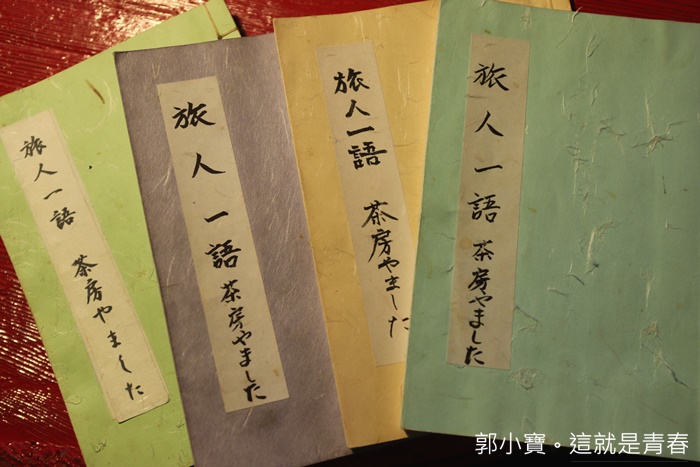 旅人一語 茶房やました
旅人一語 茶房やました
旅人一語 茶房やました
旅人一語 茶房やました
郭小寶。這就是青春